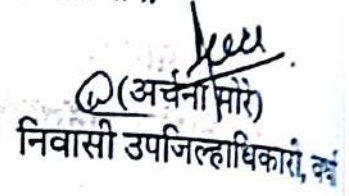 (अर्चना मोरे)
निवासी उपजिल्हाधिकारी,